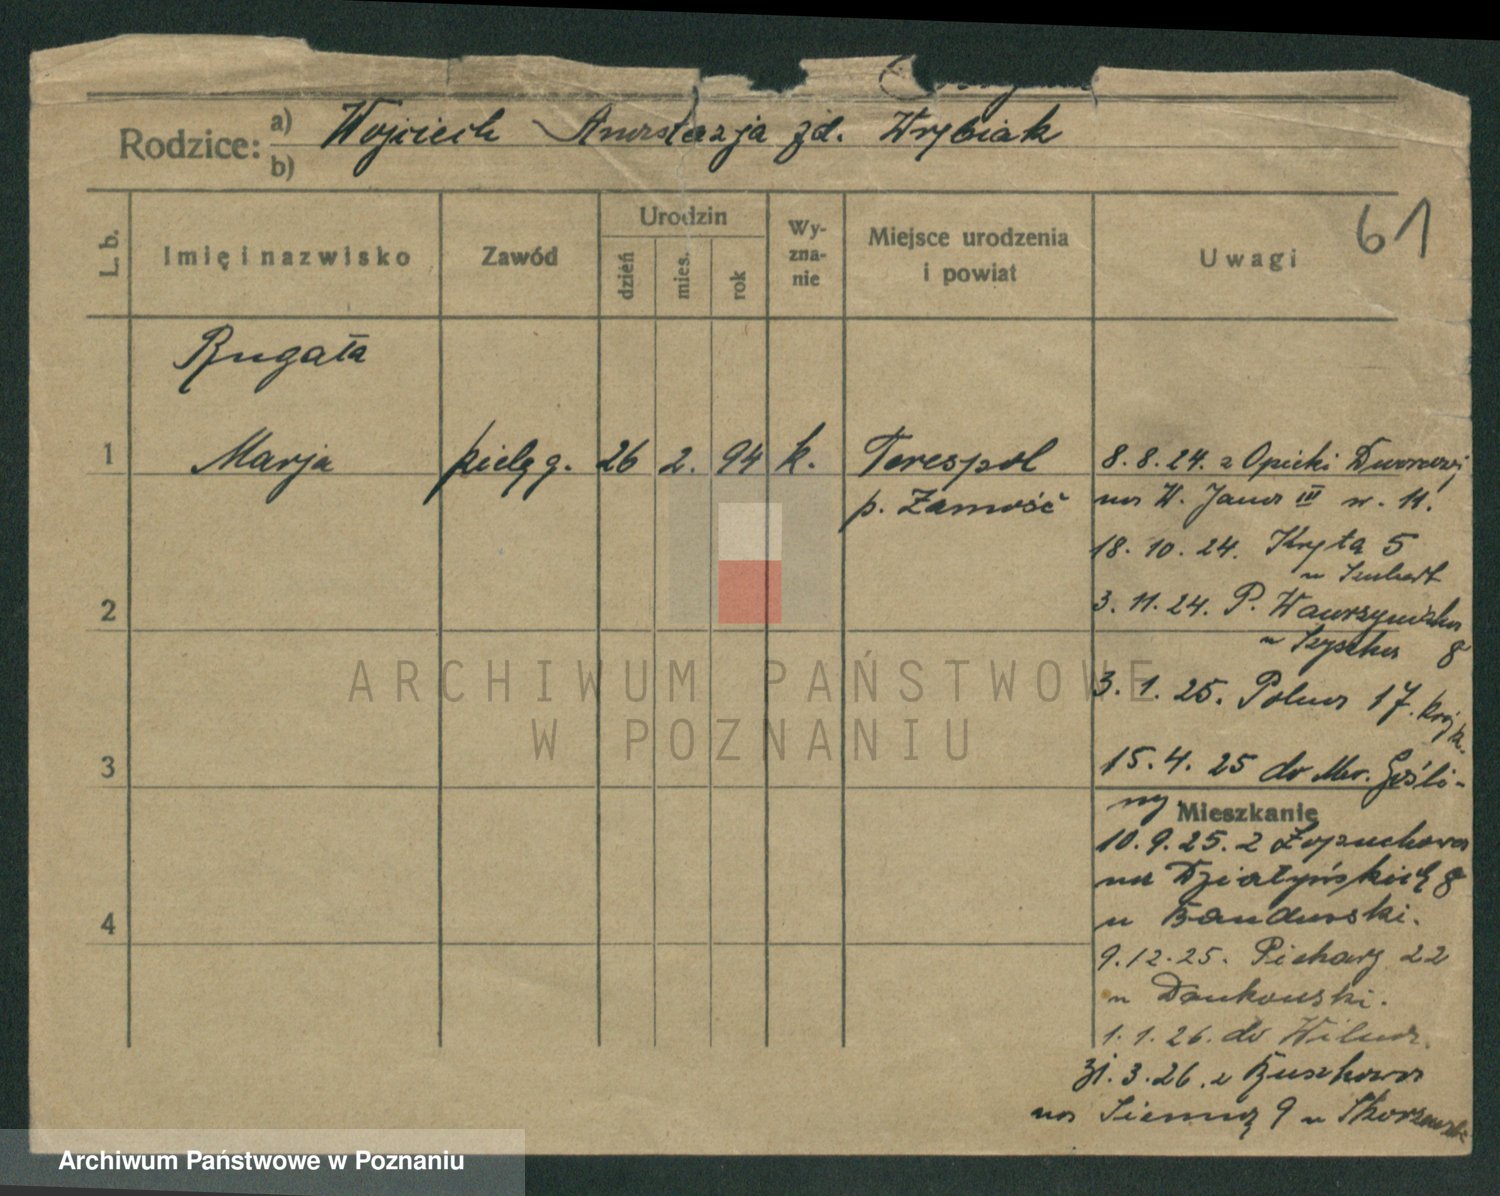 Rodzice: a) Wojciech Anastazja zd. Wrębiak
b)
61
L. b.
Imię i nazwisko
Zawód
Urodzin
dzień
mies.
rok
Wy-
zna-
nie
Miejsce urodzenia
i powiat
Uwagi
Rugała
1 Marja pielęg. 26 2. 94 k. Terespol
p. Zamość
2
3
4
8.8.24. z Opieki Dworcowej
na W. Jana III w. 11.
18. 10. 24. Kręta 5
u
3. 11. 24. P. Wawrzyniaka
u 8
3. 1. 25. Polna 17.
15. 4. 25 do Mur. Gośli-
ny
Mieszkanie
10. 9. 25. z Łopuchowa
na Działyńskich 8
u Bandurski.
9.12.25. Piekary 22
u Dankowski.
1. 1. 26. do Wilna.
31. 3. 26. z Ruszkowa
na Sienną 9 u
ARCHIWUM PAŃSTWOWE
W POZNANIU
Archiwum Państwowe w Poznaniu